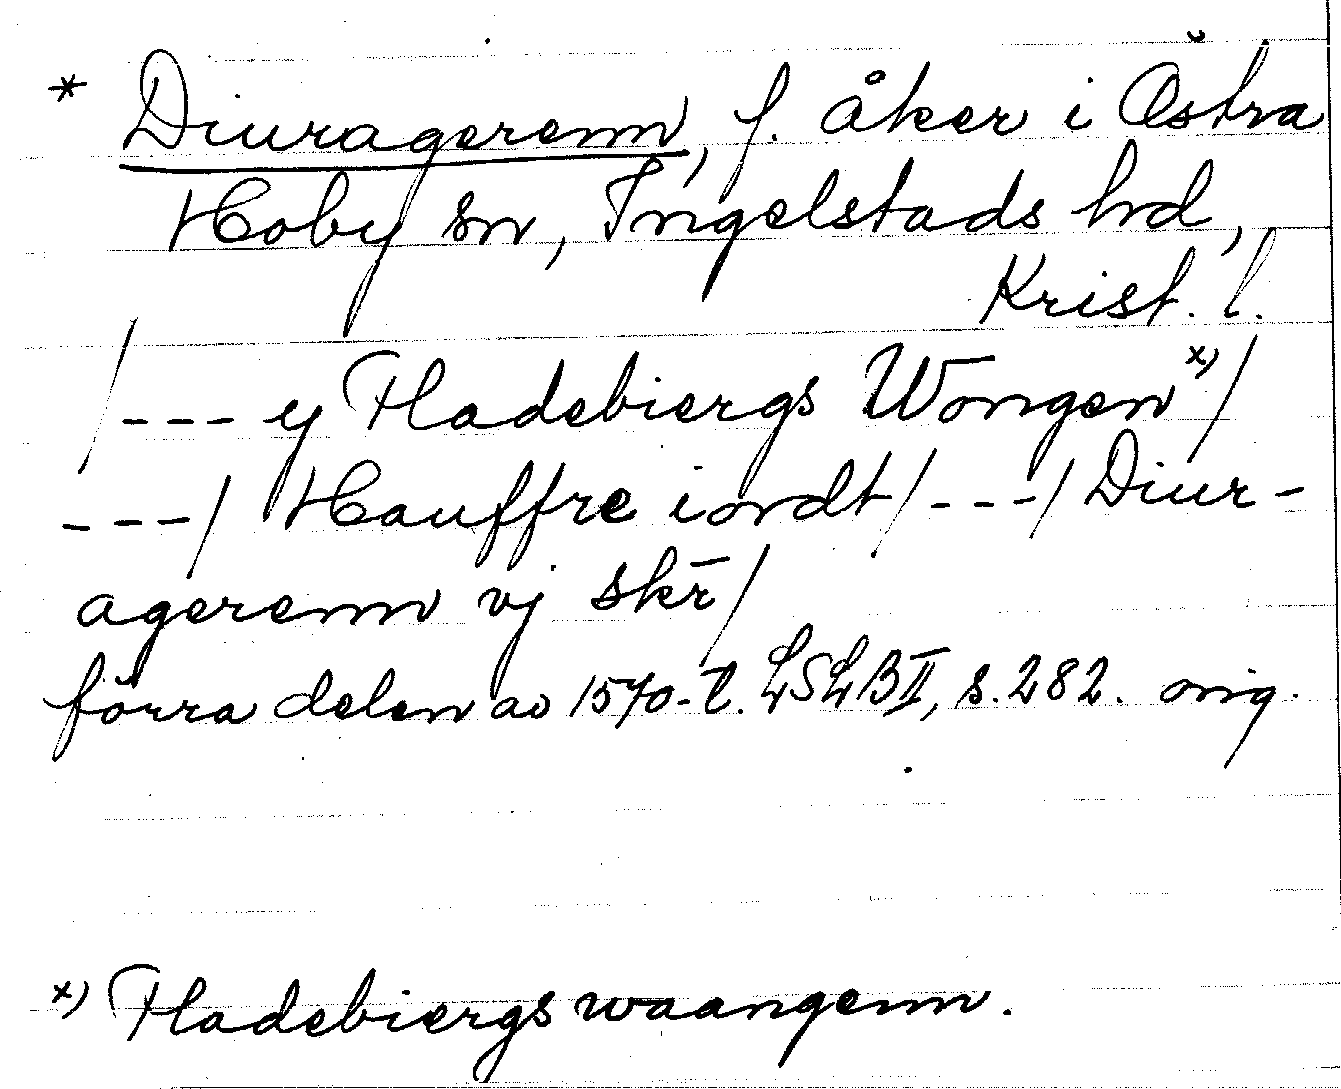 * Diuragerenn, f. åker i Östra
Hoby sn, Ingelstads hrd,
Krist. l.
/--- ij Fladebiergs Wongen x)/
---/ Hauffre iordt/---/ Diur-
agerenn vj skr̄/
förra delen av 1570-t. LSLB II, s. 282. orig.
x) Fladebiergs waangenn.